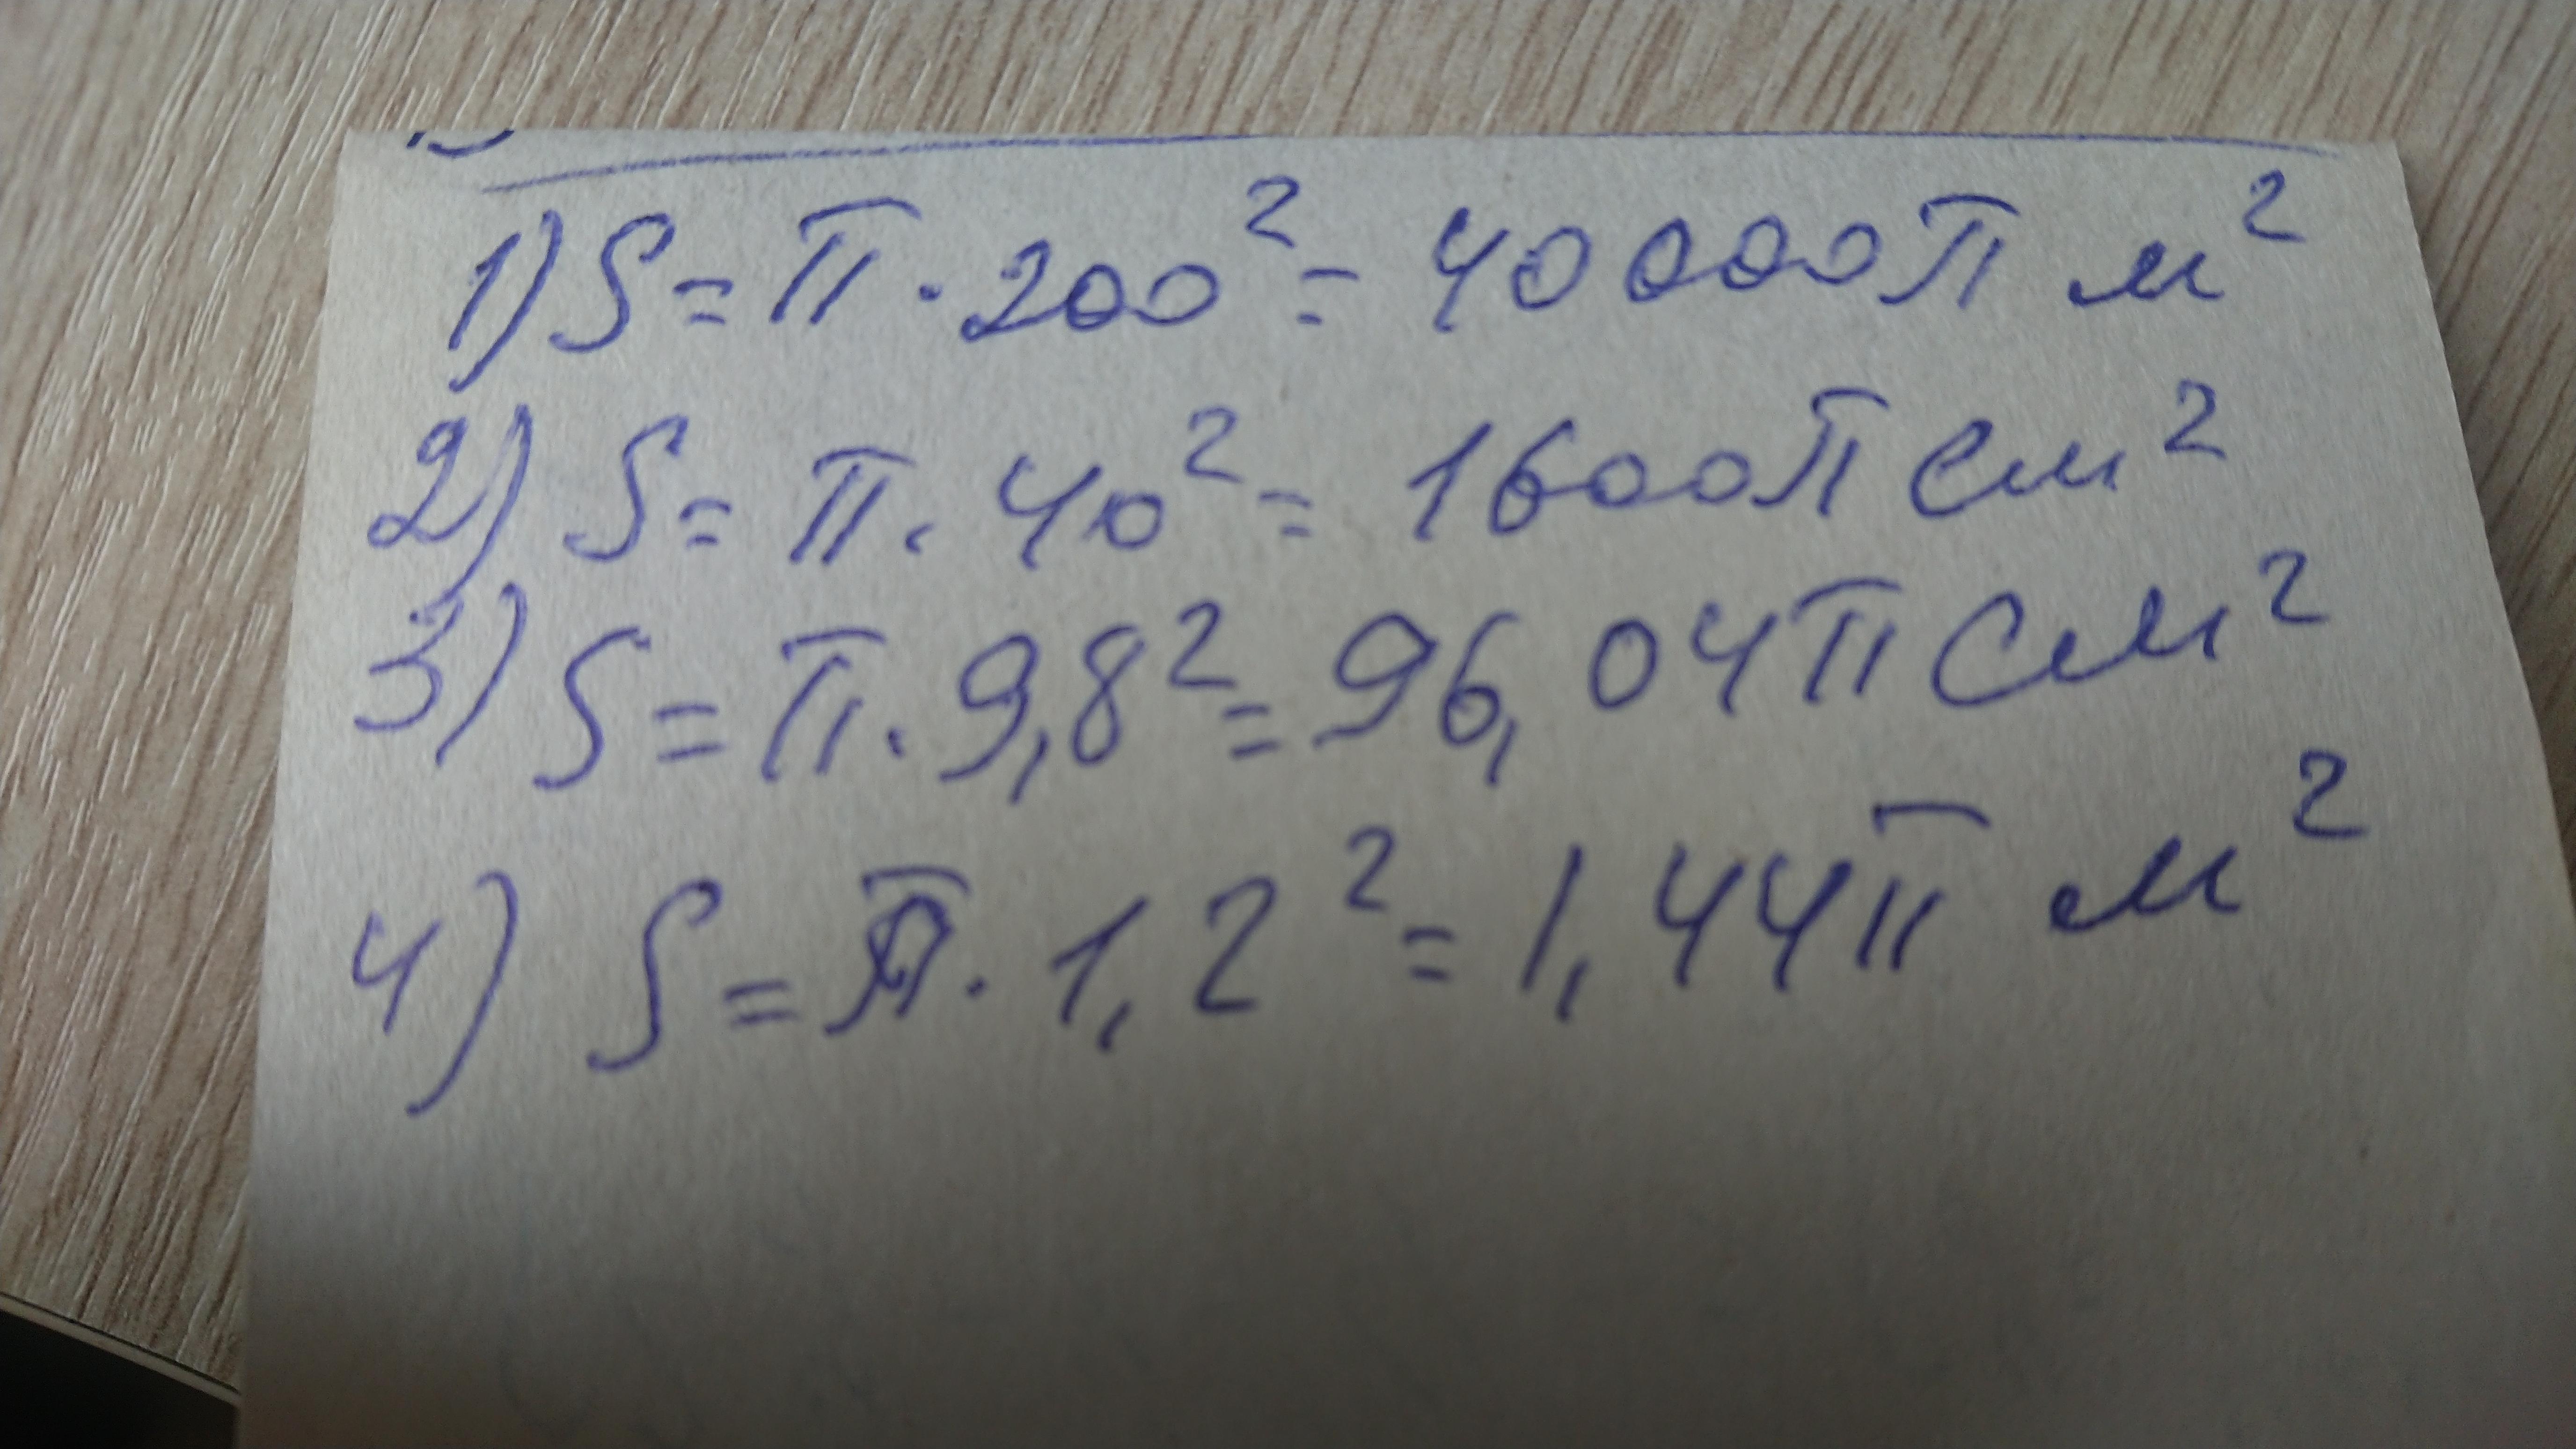 1) S = π · 200² = 40000π м²
2) S = π · 40² = 1600π см²
3) S = π · 9,8² = 96,04π см²
4) S = π · 1,2² = 1,44π м²